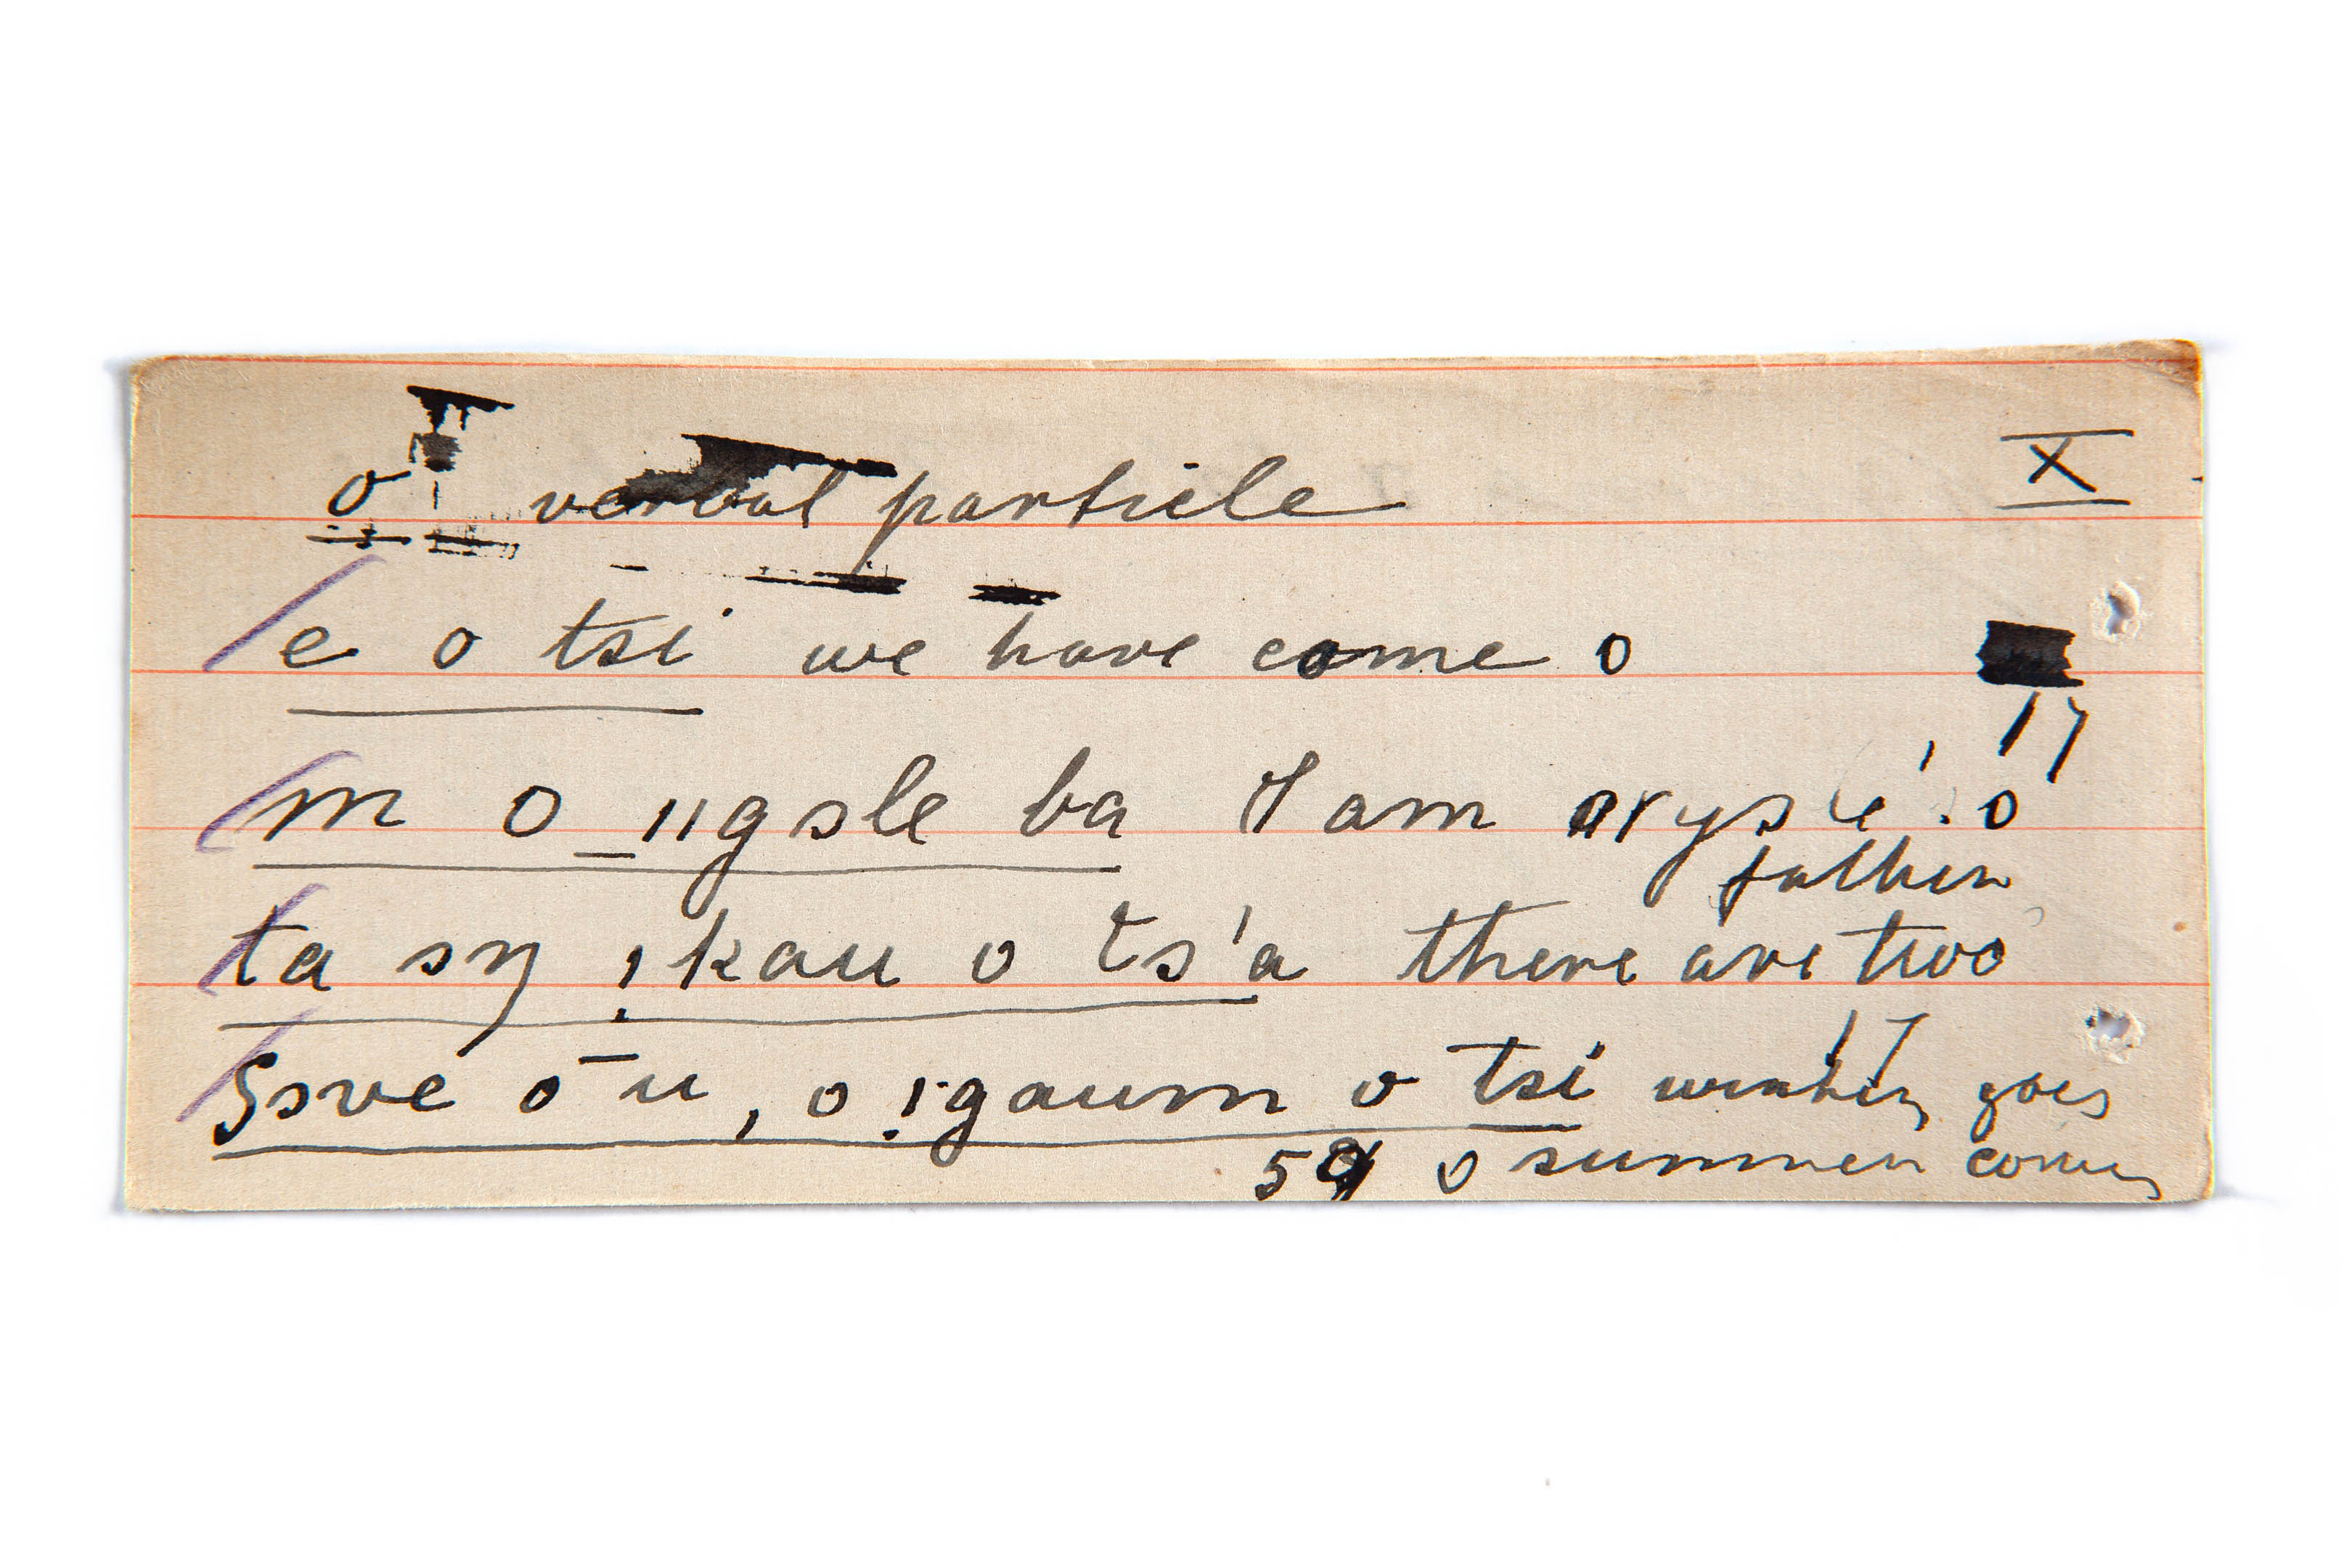 o verbal particle X
e o tsi we have come o
17
m o ǁgsle ba I am o
father
ta sŋ !kau o ts'a there are two
17
Ssve ō u, o !gaum o tsi winter goes
o summer comes